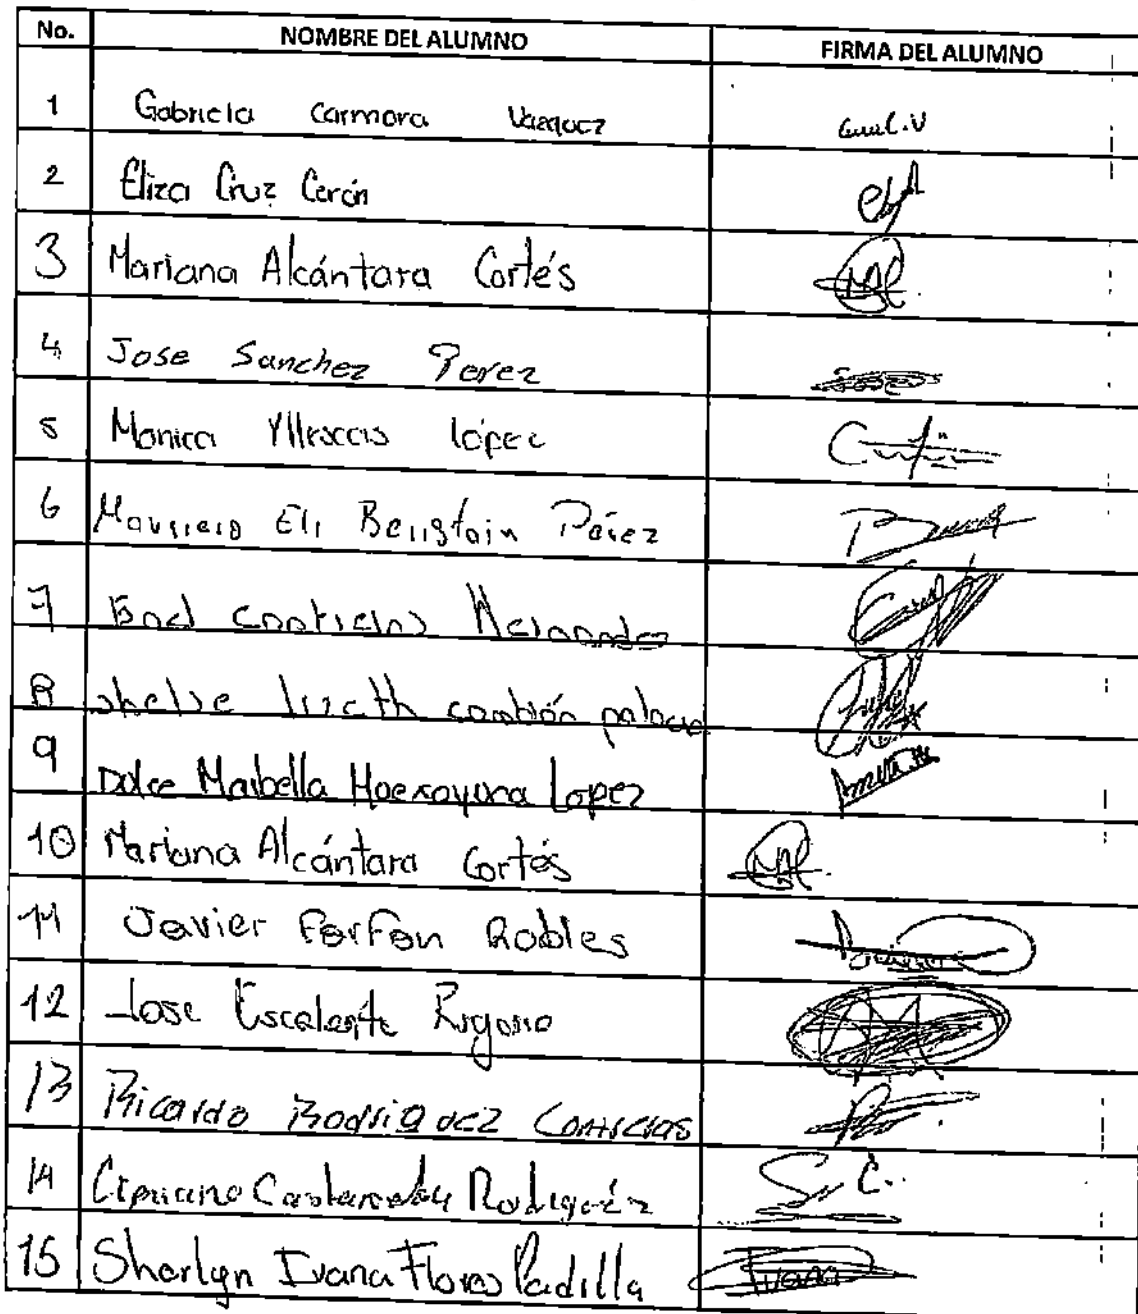 No. NOMBRE DEL ALUMNO FIRMA DEL ALUMNO
1 Gabriela Carmora Vazquez
2 Eliza Cruz Cerón
3 Mariana Alcántara Cortés
4 Jose Sanchez Perez
5 Monica Yllescas lópez
6 Mauricio Eli Beristain Pérez
7 Contreras Hernandez
8 lizeth
9 Dulce Maibella Lopez
10 Mariana Alcántara Cortés
11 Javier Farfan Robles
12 Jose Escalante
13 Ricardo Rodriguez Contreras
14 Cipriano Rodriguez
15 Sharlyn Ivana Flores Padilla Ivana